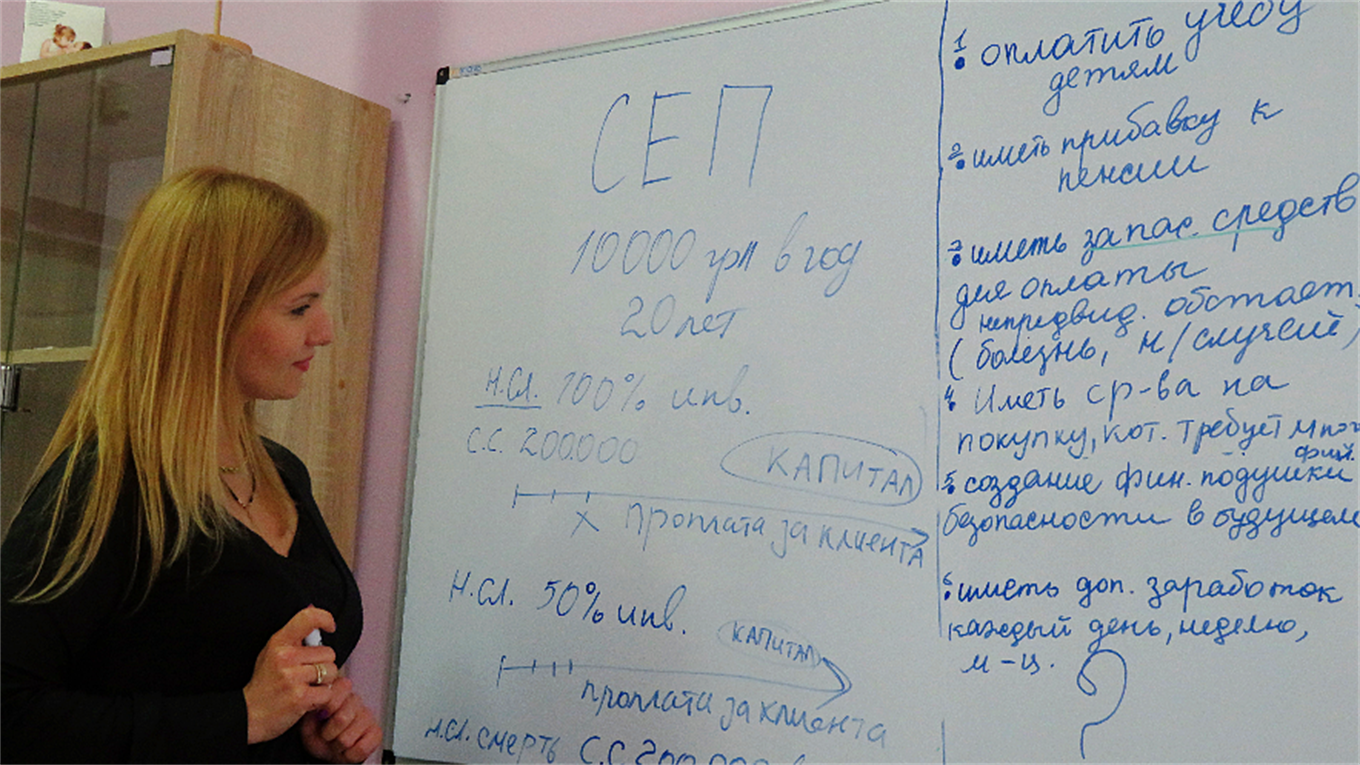 СЕП
10000 грн в год
20 лет
Н.Сл. 100% инв.
С.С. 200.000
КАПИТАЛ
Х проплата за клиента
Н.Сл. 50% инв.
КАПИТАЛ
проплата за клиента
Н.Сл. смерть С.С 200.000
1. оплатить учебу
детям
2. иметь прибавку к
пенсии
3. иметь запас. средств
для оплаты
непредвид. обстоят.
(болезнь, н/случай)
4. Иметь ср-ва на
покупку, кот. требует мног
фин.
5. создание фин. подушки
безопасности в будущем
6. иметь доп. заработок
каждый день, неделю,
м-ц.
?